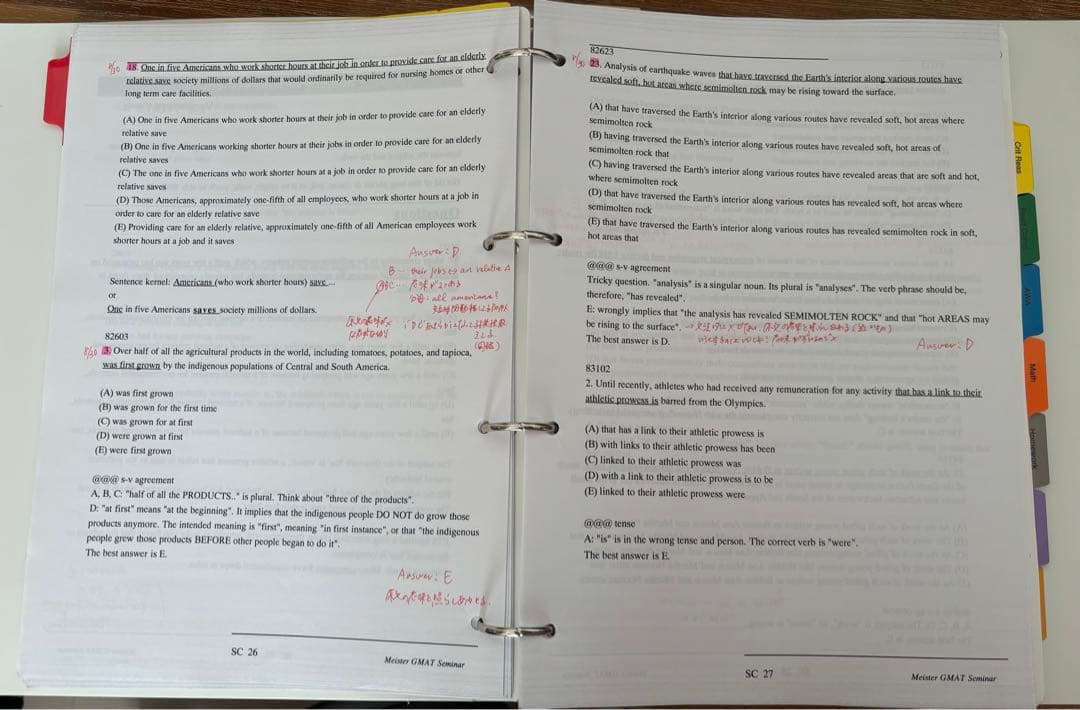 18. One in five Americans who work shorter hours at their job in order to provide care for an elderly
relative save society millions of dollars that would ordinarily be required for nursing homes or other
long term care facilities.
(A) One in five Americans who work shorter hours at their job in order to provide care for an elderly
relative save
(B) One in five Americans working shorter hours at their jobs in order to provide care for an elderly
relative saves
(C) The one in five Americans who work shorter hours at a job in order to provide care for an elderly
relative saves
(D) Those Americans, approximately one-fifth of all employees, who work shorter hours at a job in
order to care for an elderly relative save
(E) Providing care for an elderly relative, approximately one-fifth of all American employees work
shorter hours at a job and it saves
Answer: D
B… their jobs ⇔ an relative
Sentence kernel: Americans (who work shorter hours) save....
or
One in five Americans saves society millions of dollars.
82603
8/30 3. Over half of all the agricultural products in the world, including tomatoes, potatoes, and tapioca,
was first grown by the indigenous populations of Central and South America.
(A) was first grown
(B) was grown for the first time
(C) was grown for at first
(D) were grown at first
(E) were first grown
@@@ s-v agreement
A, B, C: "half of all the PRODUCTS.." is plural. Think about "three of the products".
D: "at first" means "at the beginning". It implies that the indigenous people DO NOT do grow those
products anymore. The intended meaning is "first", meaning "in first instance", or that "the indigenous
people grew those products BEFORE other people began to do it".
The best answer is E.
Answer: E
原文の意味と照らしあわせる.
SC 26
Meister GMAT Seminar
82623
23. Analysis of earthquake waves that have traversed the Earth's interior along various routes have
revealed soft, hot areas where semimolten rock may be rising toward the surface.
(A) that have traversed the Earth's interior along various routes have revealed soft, hot areas where
semimolten rock
(B) having traversed the Earth's interior along various routes have revealed soft, hot areas of
semimolten rock that
(C) having traversed the Earth's interior along various routes have revealed areas that are soft and hot,
where semimolten rock
(D) that have traversed the Earth's interior along various routes has revealed soft, hot areas where
semimolten rock
(E) that have traversed the Earth's interior along various routes has revealed semimolten rock in soft,
hot areas that
@@@ s-v agreement
Tricky question. "analysis" is a singular noun. Its plural is "analyses". The verb phrase should be,
therefore, "has revealed".
E: wrongly implies that "the analysis has revealed SEMIMOLTEN ROCK" and that "hot AREAS may
be rising to the surface".
The best answer is D.
Answer: D
83102
2. Until recently, athletes who had received any remuneration for any activity that has a link to their
athletic prowess is barred from the Olympics.
(A) that has a link to their athletic prowess is
(B) with links to their athletic prowess has been
(C) linked to their athletic prowess was
(D) with a link to their athletic prowess is to be
(E) linked to their athletic prowess were
@@@ tense
A: "is" is in the wrong tense and person. The correct verb is "were".
The best answer is E.
SC 27
Meister GMAT Seminar
Crit Reas
AWA
Math
Homework